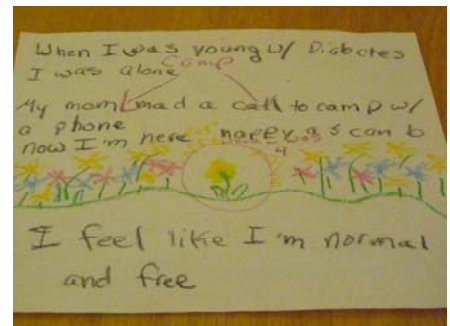 When I was young w/ Diabetes
I was alone
Camp
My mom mad a call to camp w/
a phone
now I'm here happy as can b
I feel like I'm normal
and free